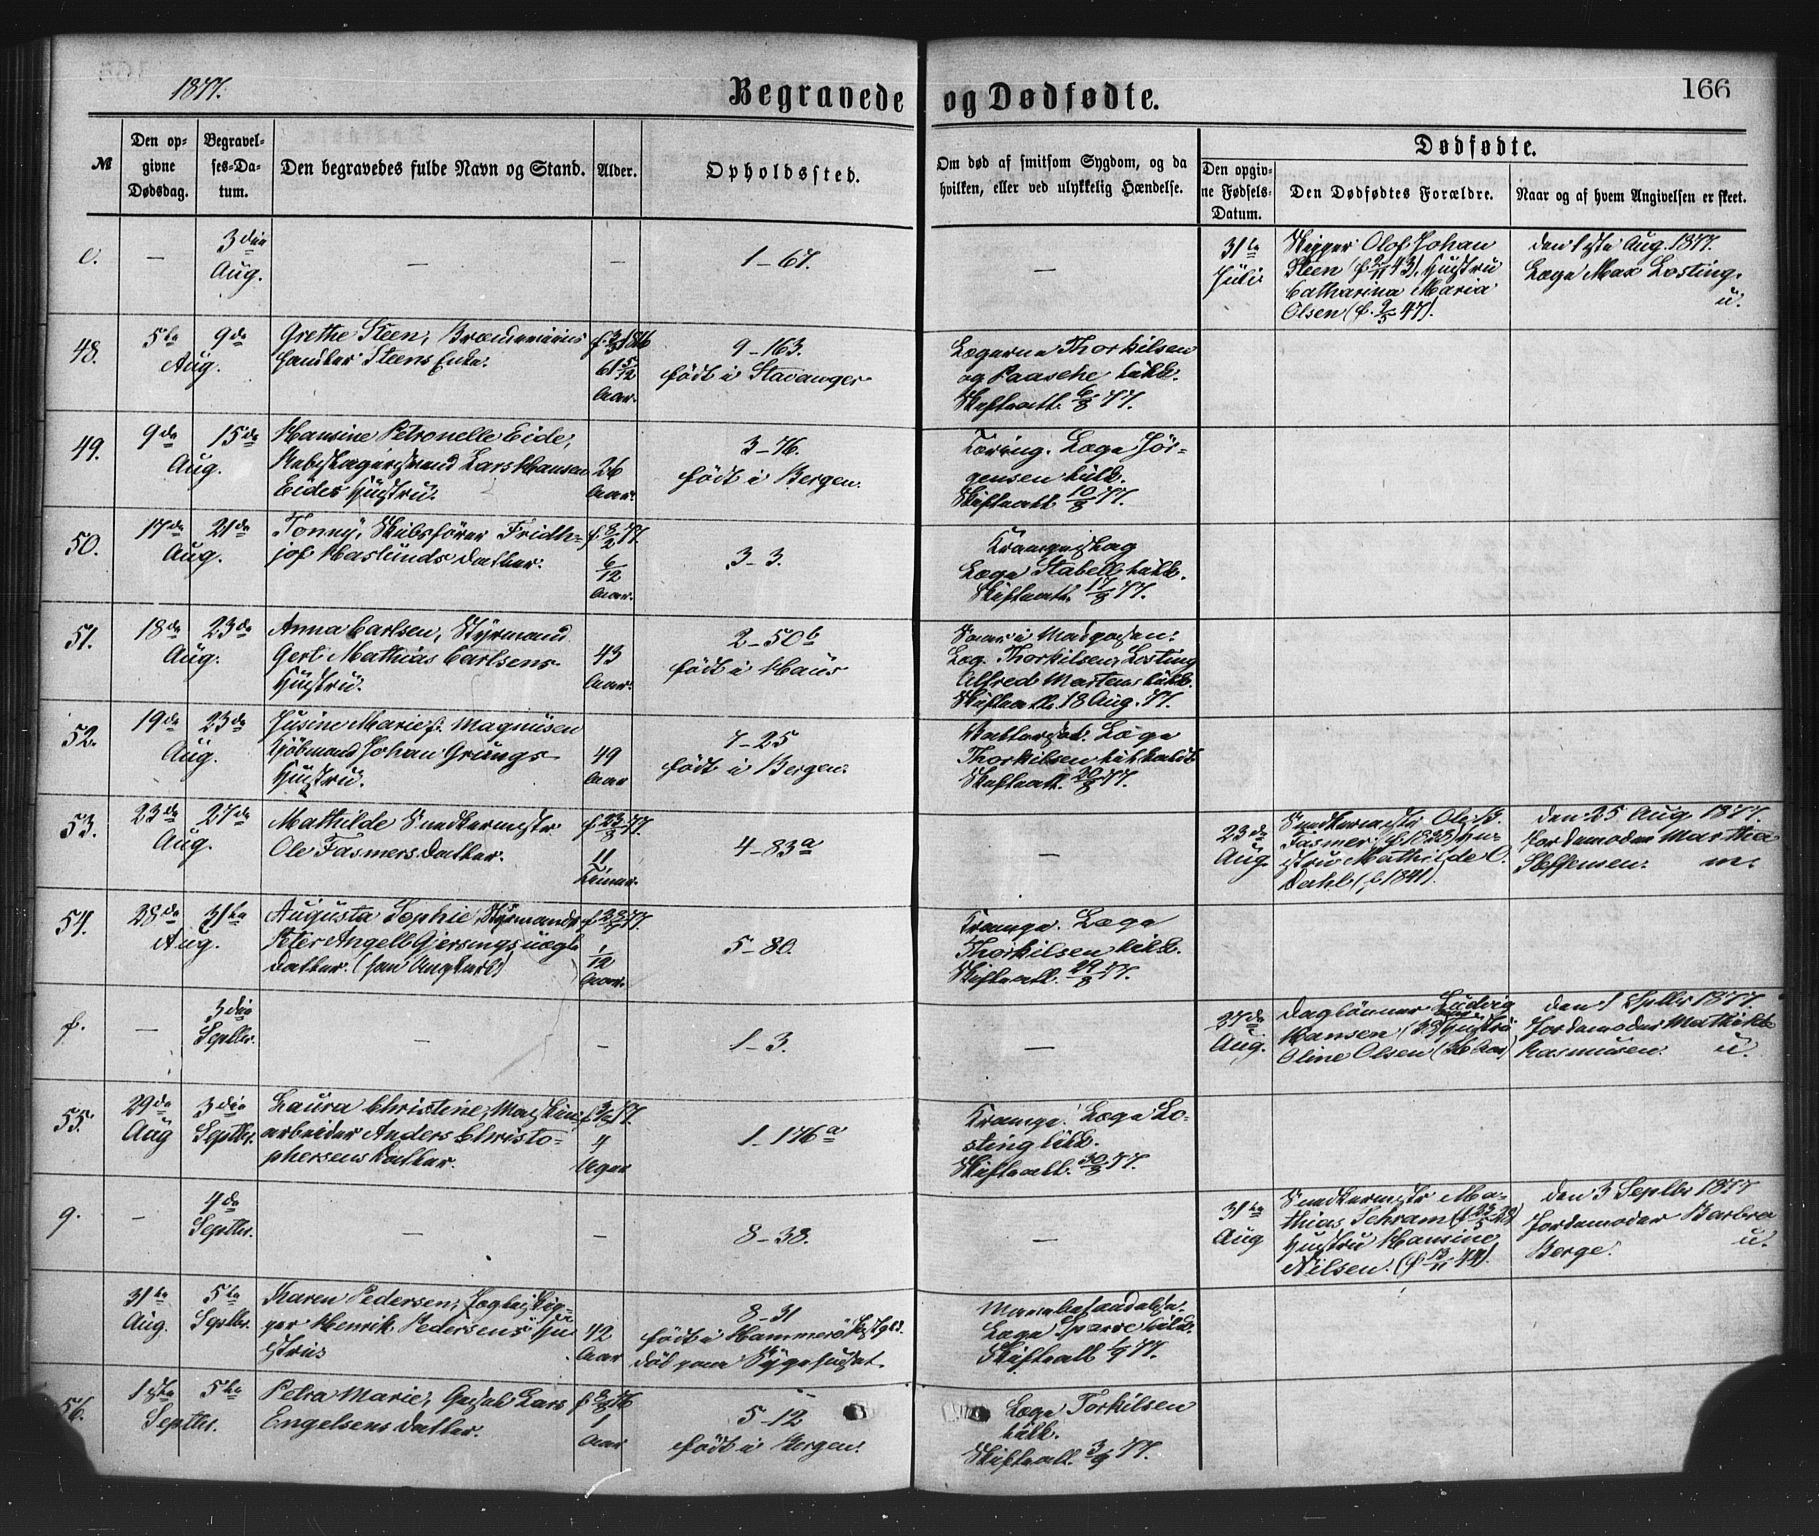 1877.
Begravede og Dødfødte.
166
№
Den op-
givne
Dødsdag.
Begravel-
ses-Da-
tum.
Den begravedes fulde Navn og Stand.
Alder.
Opholdssted.
Om død af smitsom Sygdom, og da
hvilken, eller ved ulykkelig Hændelse.
Dødfødte.
Den opgiv-
ne Fødsels-
Datum.
Den Dødfødtes Forældre.
Naar og af hvem Angivelsen er skeet.
e.
—
3die
Aug.
—
1-67.
—
31te
Juli
Skipper Olof Johan
Steen Hustru
Catharina Maria
Olsen (f. 9/5 47).
den 1ste Aug. 1877.
Læge Max Losting.
u.
48.
5te
9de
Aug.
Grethe Steen,
Steens Enke.
61 5/12
Aar.
9-163.
født i Stavanger
Lægerne Thorkilsen
og Paasche
Skifteatt. 6/8 77.
49.
9de
15de
Aug.
Hansine Petronelle Eide,
Lars Hansen
Eides Hustru.
26
Aar.
3-76.
født i Bergen.
Tæring. Læge Jör-
gensen
Skifteatt. 10/8 77.
50.
17de
21de
Aug.
Tonny, Skibsfører Fridth-
jof Haslunds Datter.
f. 8/2 77.
6/12
Aar.
3-3.
Krampeslag
Læge Stabell
Skifteatt. 17/8 77.
51.
18de
23de
Aug.
Anna Carlsen, Styrmand
Gert Mathias Carlsens
Hustru.
43
Aar.
2-50b
født i Haus
Saar i Mavesækken.
Læg. Thorkilsen, Losting
Alfred Martens
Skifteatt. 18 Aug. 77.
52.
19de
23de
Aug.
Jusine Marie f. Magnusen
Kjøbmand Johan Grungs
Hustru.
49
Aar
7-25
født i Bergen.
Vattersot. Læge
Thorkilsen
Skifteatt. 20/8 77.
53.
23de
27de
Aug.
Mathilde Snedkermester
Ole Fasmers Datter.
f. 23/8 77.
11
Timer.
4-83a
—
23de
Aug.
Snedkermester Ole
Fasmer (f. 1838) Hu-
stru Mathilde C.
Dahl (f. 1841).
den 25 Aug 1877.
Jordemoder Martha
Steffensen. m.
54.
28de
31te
Aug.
Augusta Sophie, Styrmand
Peter Angell Gjersings uægte
Datter.
1/12
Aar.
5-80.
Krampe. Læge
Thorkilsen
Skifteatt. 29/8 77.
f.
—
3die
Septbr.
—
—
1-3.
—
27de
Aug.
Daglønner Ludvig
Hansen Hustru
Oline Olsen
den 1 Septbr 1877
Jordemoder
Rasmusen. u.
55.
29de
Aug
3die
Septbr.
Laura Christine, Maskin-
arbeider Anders Christo-
phersens Datter.
4
Uger
1-176a
Krampe. Læge Lo-
sting
Skifteatt. 30/8 77.
g.
—
4de
Septbr.
—
—
8-38.
—
31te
Aug
Snedkermester Ma-
thias Schram
Hustru Hansine
Nilsen.
den 3 Septbr 1877
Jordemoder Barbra
Berge. u.
31te
Aug.
5te
Septbr.
Karen Pedersen, Jagteskip-
per Henrik Pedersens Hu-
strue
42
Aar
8-31
født i Hammerø
død paa Sygehuset.
Læge Sparre
Skifteatt 1/9 77.
56.
1ste
5te
Septbr.
Petra Marie, Lars
Engelsens Datter.
1
Aar
5-12
født i Bergen.
Læge Torkilsen
Skifteatt. 3/9 77.